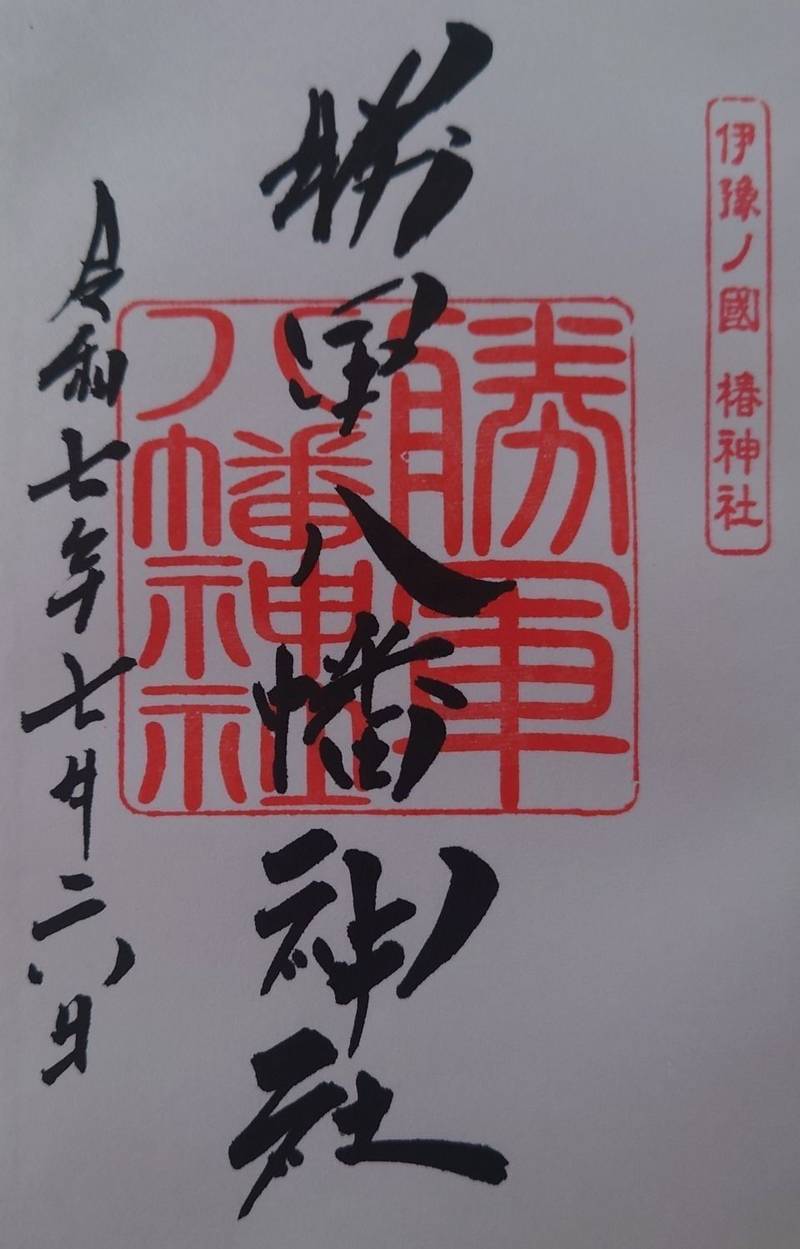 伊豫ノ國 椿神社
勝軍八幡神社
勝軍
八幡神社
令和七年七月二六日